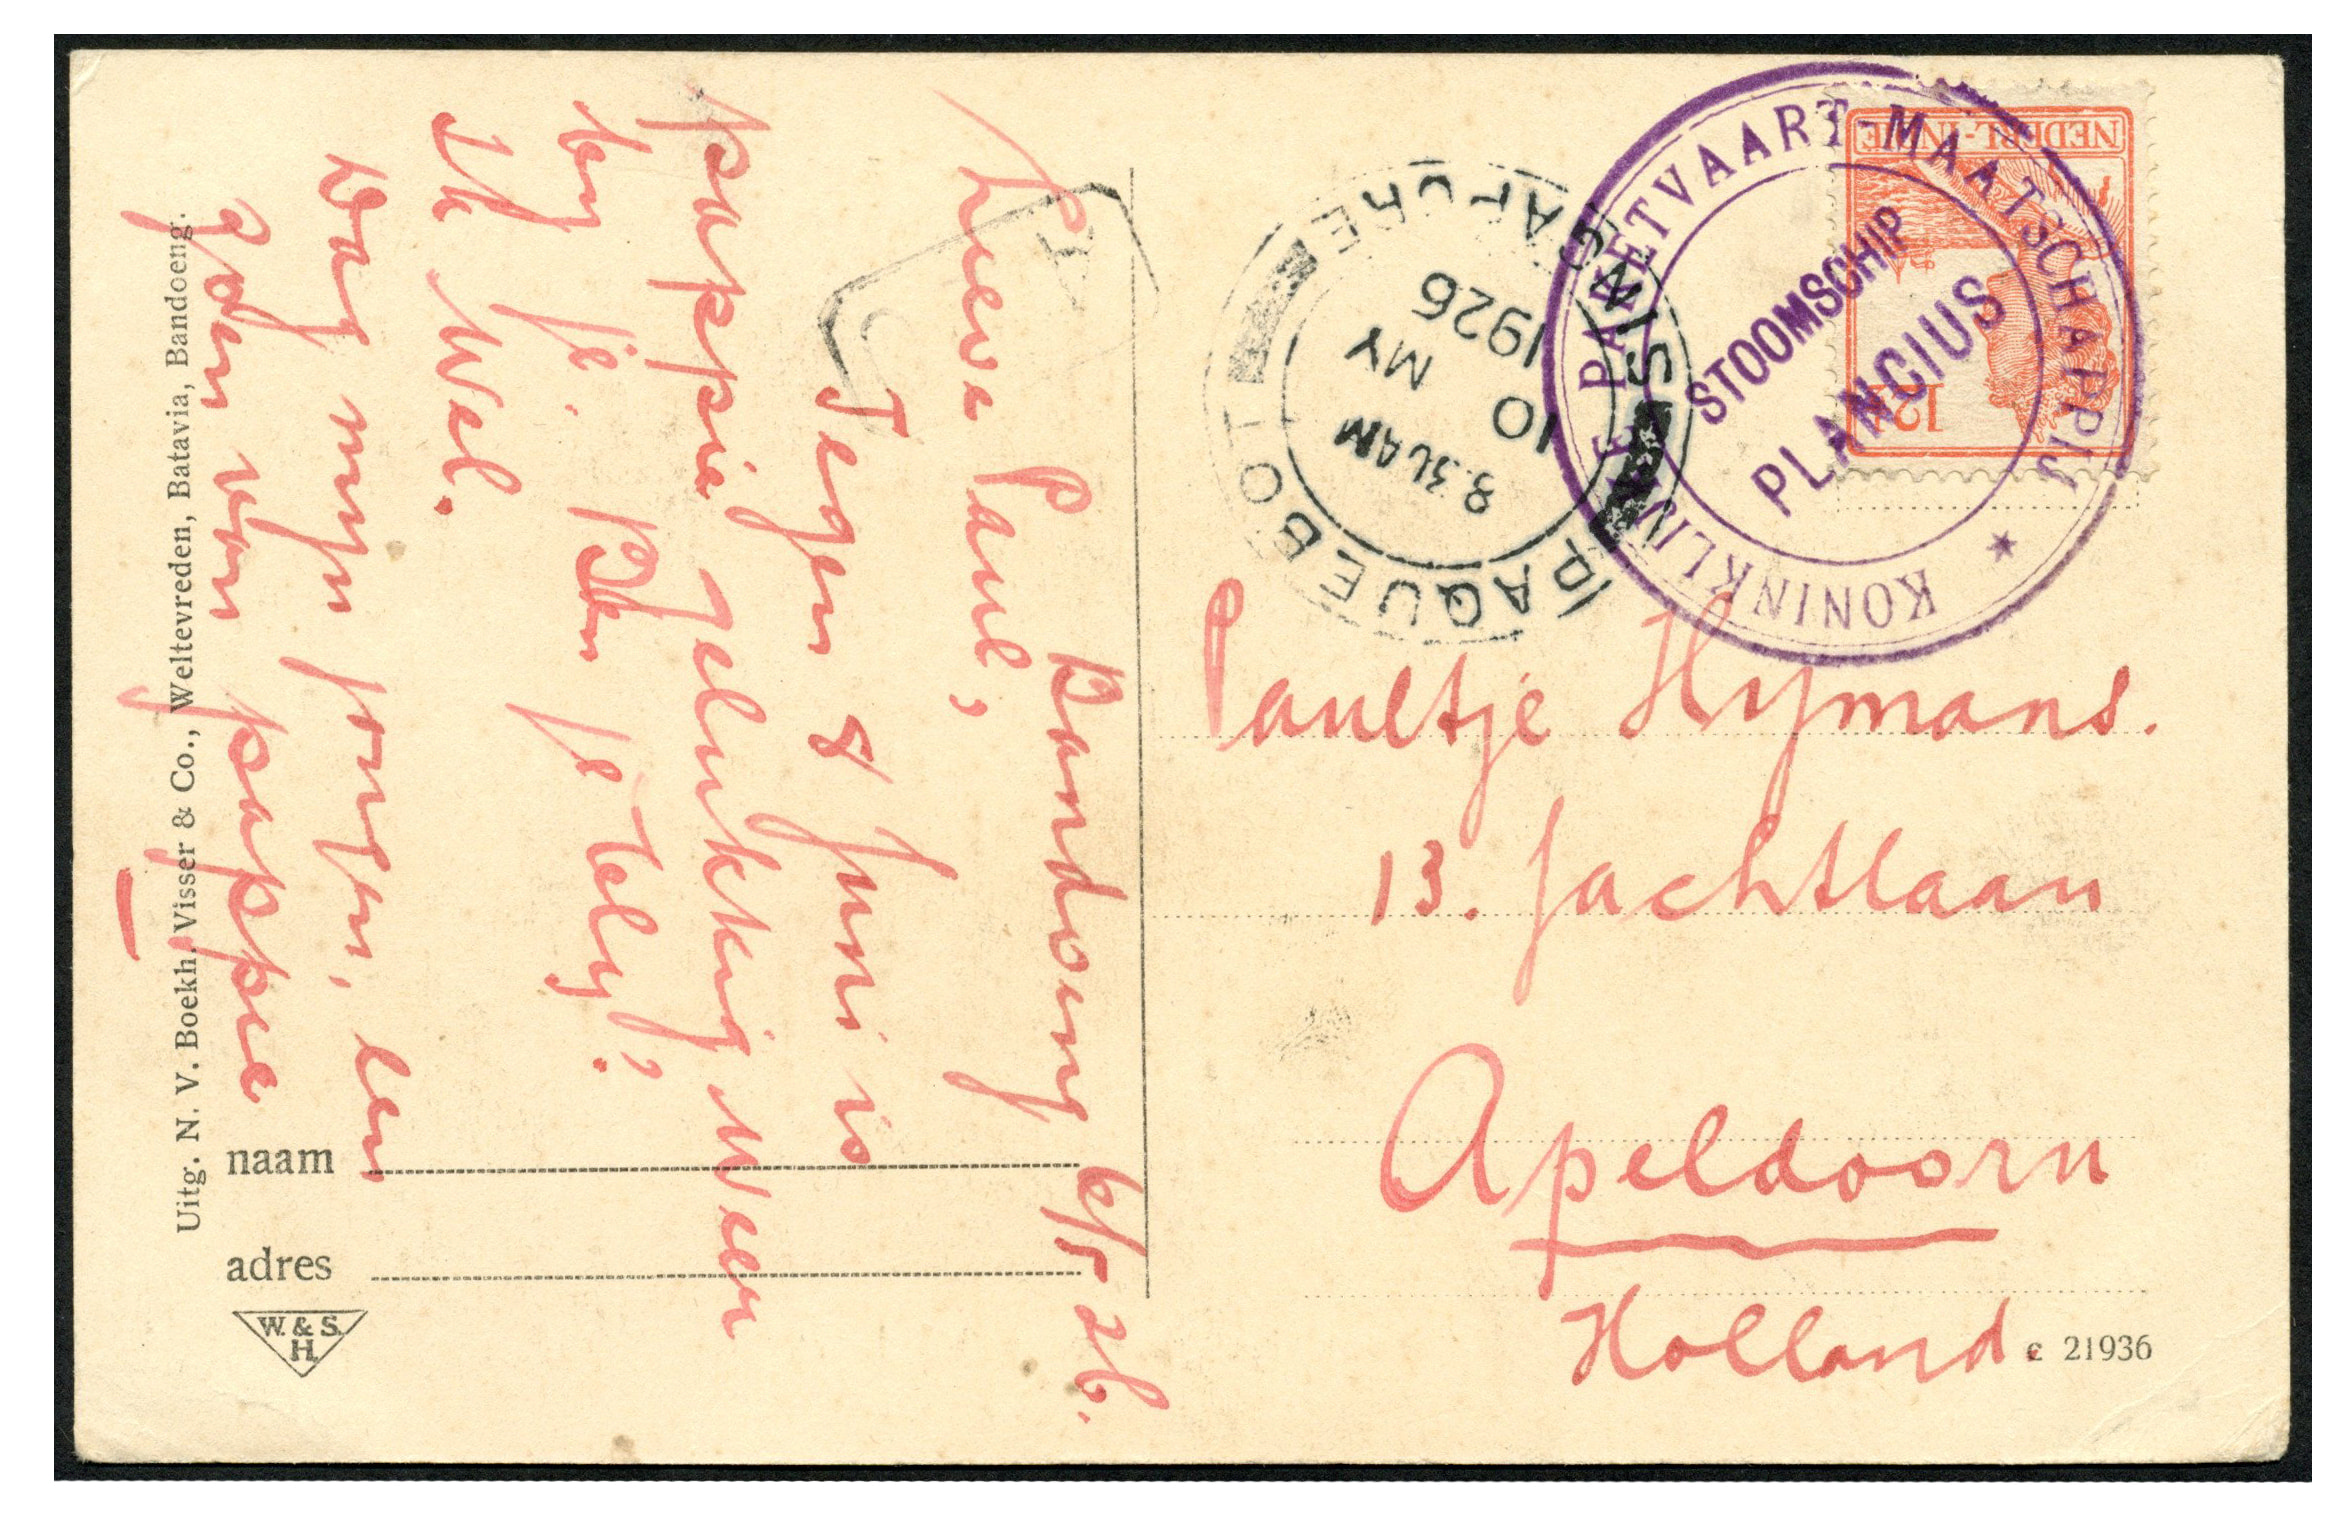 Bandoeng 6/5 26.
Lieve Paul,
Tegen 8 Juni is
pappie gelukkig weer
by je. Ben je bly?
Ik wel.
Dag myn jongen, een
zoen van pappie
naam
adres
W. & S.
H.
Uitg. N. V. Boekh. Visser & Co., Weltevreden, Batavia, Bandoeng.
NEDERL.-INDIË
12½
KONINKLIJKE PAKETVAART-MAATSCHAPPIJ
STOOMSCHIP
PLANCIUS
SINGAPORE
PAQUEBOT
8.30 AM
10
MY
1926
T
Paultje Hymans.
13. Jachtlaan
Apeldoorn
Holland.
c 21936